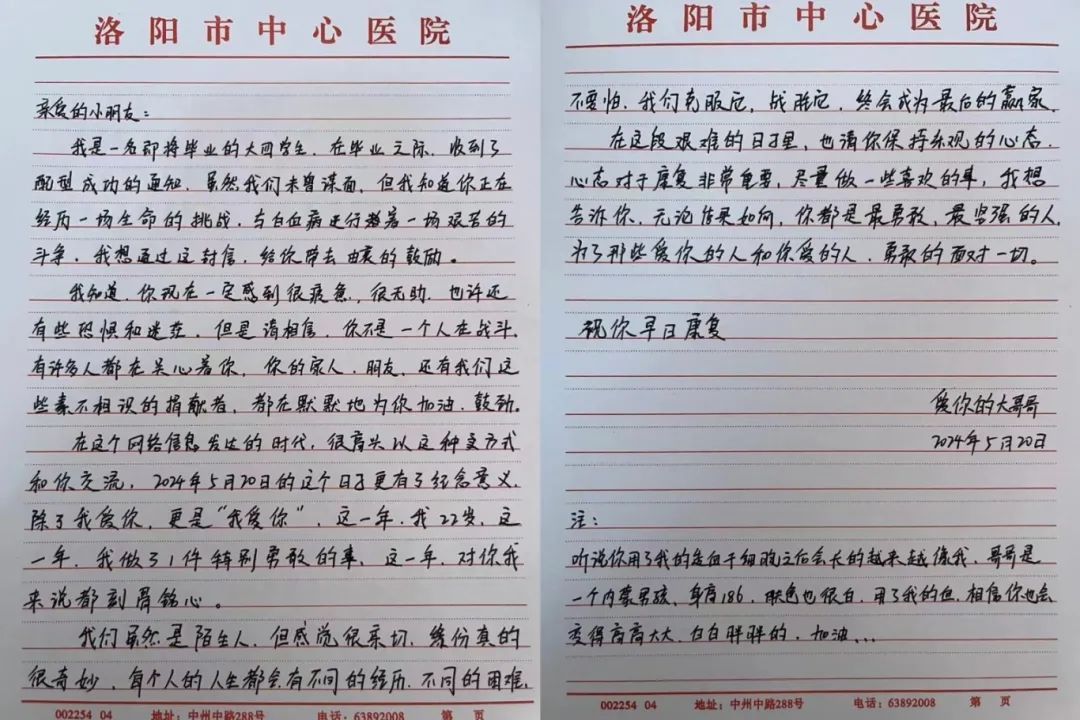 洛阳市中心医院
亲爱的小朋友：
我是一名即将毕业的大四学生，在毕业之际，收到了
配型成功的通知。虽然我们未曾谋面，但我知道你正在
经历一场生命的挑战，与白血病进行着一场艰苦的
斗争，我想通过这封信，给你带去由衷的鼓励。
我知道，你现在一定感到很疲惫，很无助，也许还
有些恐惧和迷茫，但是请相信，你不是一个人在战斗，
有许多人都在关心着你，你的家人、朋友，还有我们这
些素不相识的捐献者，都在默默地为你加油、鼓劲。
在这个网络信息发达的时代，很高兴以这种方式
和你交流，2024年5月20日的这个日子更有了纪念意义，
除了我爱你，更是“我爱你”，这一年，我22岁，这
一年，我做了1件特别勇敢的事，这一年，对你我
来说都刻骨铭心。
我们虽然是陌生人，但感觉很亲切，缘份真的
很奇妙，每个人的人生都会有不同的经历，不同的困难，
002254 04 地址：中州中路288号 电话：63892008 第 页
洛阳市中心医院
不要怕，我们克服它，战胜它，终会成为最后的赢家。
在这段艰难的日子里，也请你保持乐观的心态，
心态对于康复非常重要，尽量做一些喜欢的事，我想
告诉你，无论结果如何，你都是最勇敢、最坚强的人，
为了那些爱你的人和你爱的人，勇敢的面对一切。
祝你早日康复
爱你的大哥哥
2024年5月20日
注：
听说你用了我的造血干细胞之后会长的越来越像我，哥哥是
一个内蒙男孩，身高186，肤色也很白，用了我的血，相信你也会
变得高高大大、白白胖胖的，加油...
002254 04 地址：中州中路288号 电话：63892008 第 页